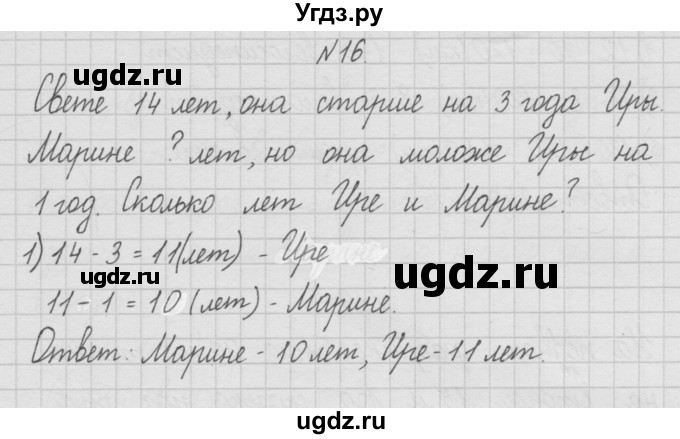 Угдз.ру
№16.
Свете 14 лет, она старше на 3 года Иры.
Марине ? лет, но она моложе Иры на
1 год. Сколько лет Ире и Марине?
1) 14 - 3 = 11 (лет) - Ире
11 - 1 = 10 (лет) - Марине.
Ответ: Марине - 10 лет, Ире - 11 лет.
ugdz.ru
ugdz.ru
ugdz.ru
ugdz.ru
ugdz.ru
ugdz.ru